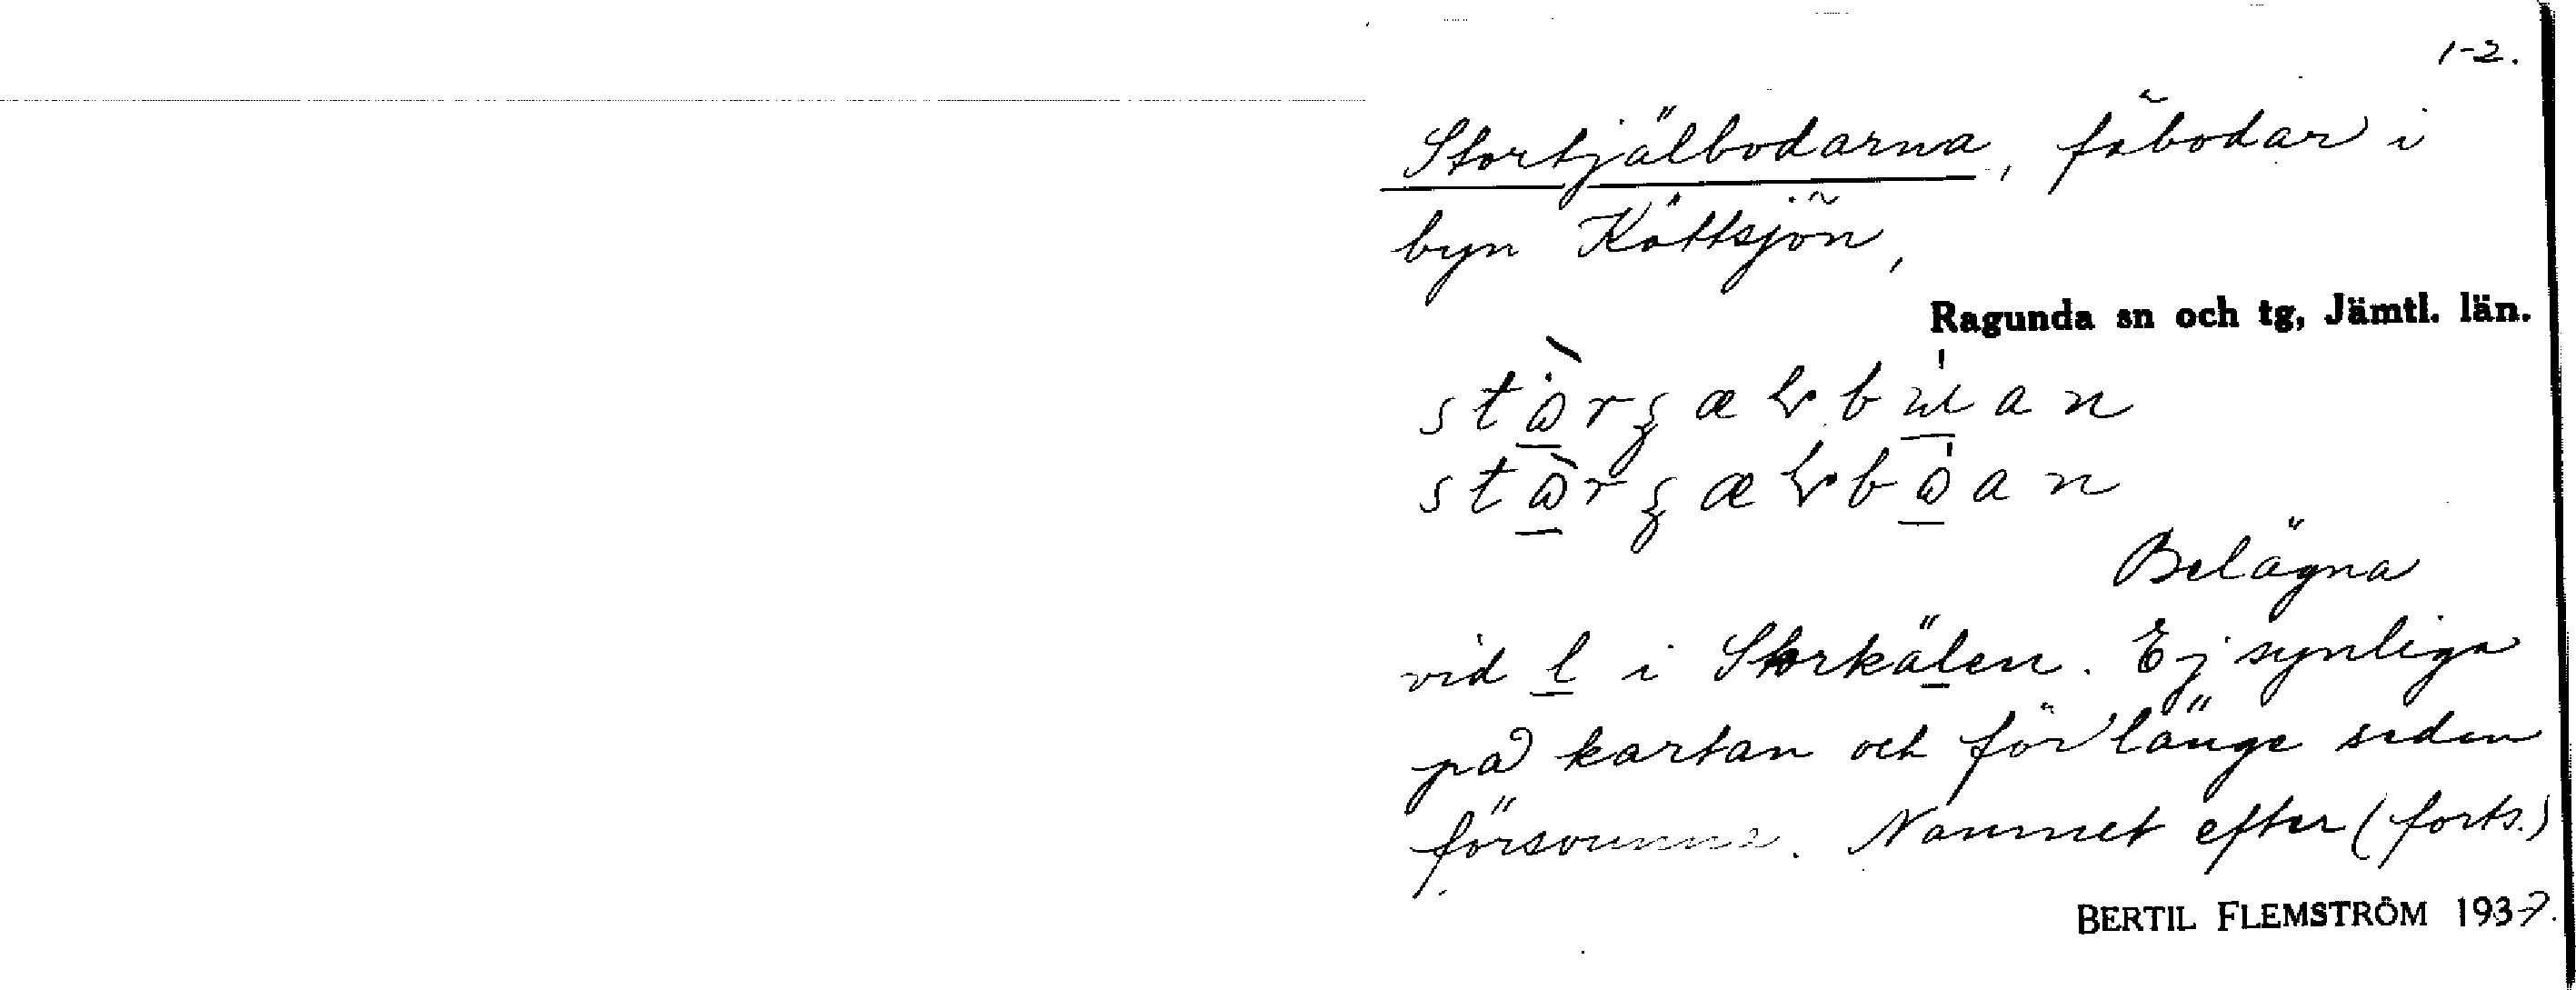 1-2.
Stortjälbodarna, fäbodar i
byn Köttsjön,
Ragunda sn och tg, Jämtl. län.
Belägna
vid l i Storkälen. Ej synliga
på kartan och för länge sedan
försvunna. Namnet efter (forts.)
BERTIL FLEMSTRÖM 1937.